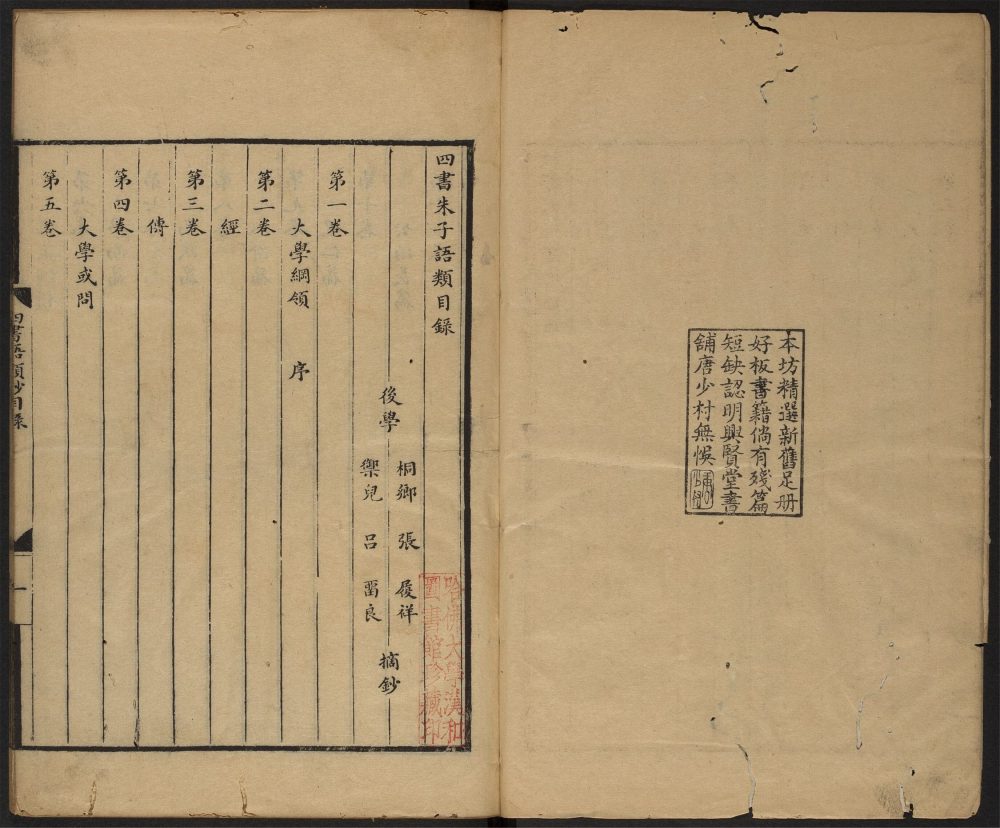 本坊精選新舊足册
好板書籍倘有殘篇
短缺認明興賢堂書
舖唐少村無悞
四書朱子語類目錄
後學 桐鄉 張 履祥
禦兒 呂 畱良 摘鈔
第一卷
大學綱領 序
第二卷
經
第三卷
傳
第四卷
大學或問
第五卷
四書語類鈔目錄
一
哈佛大學漢和
圖書館珍藏印